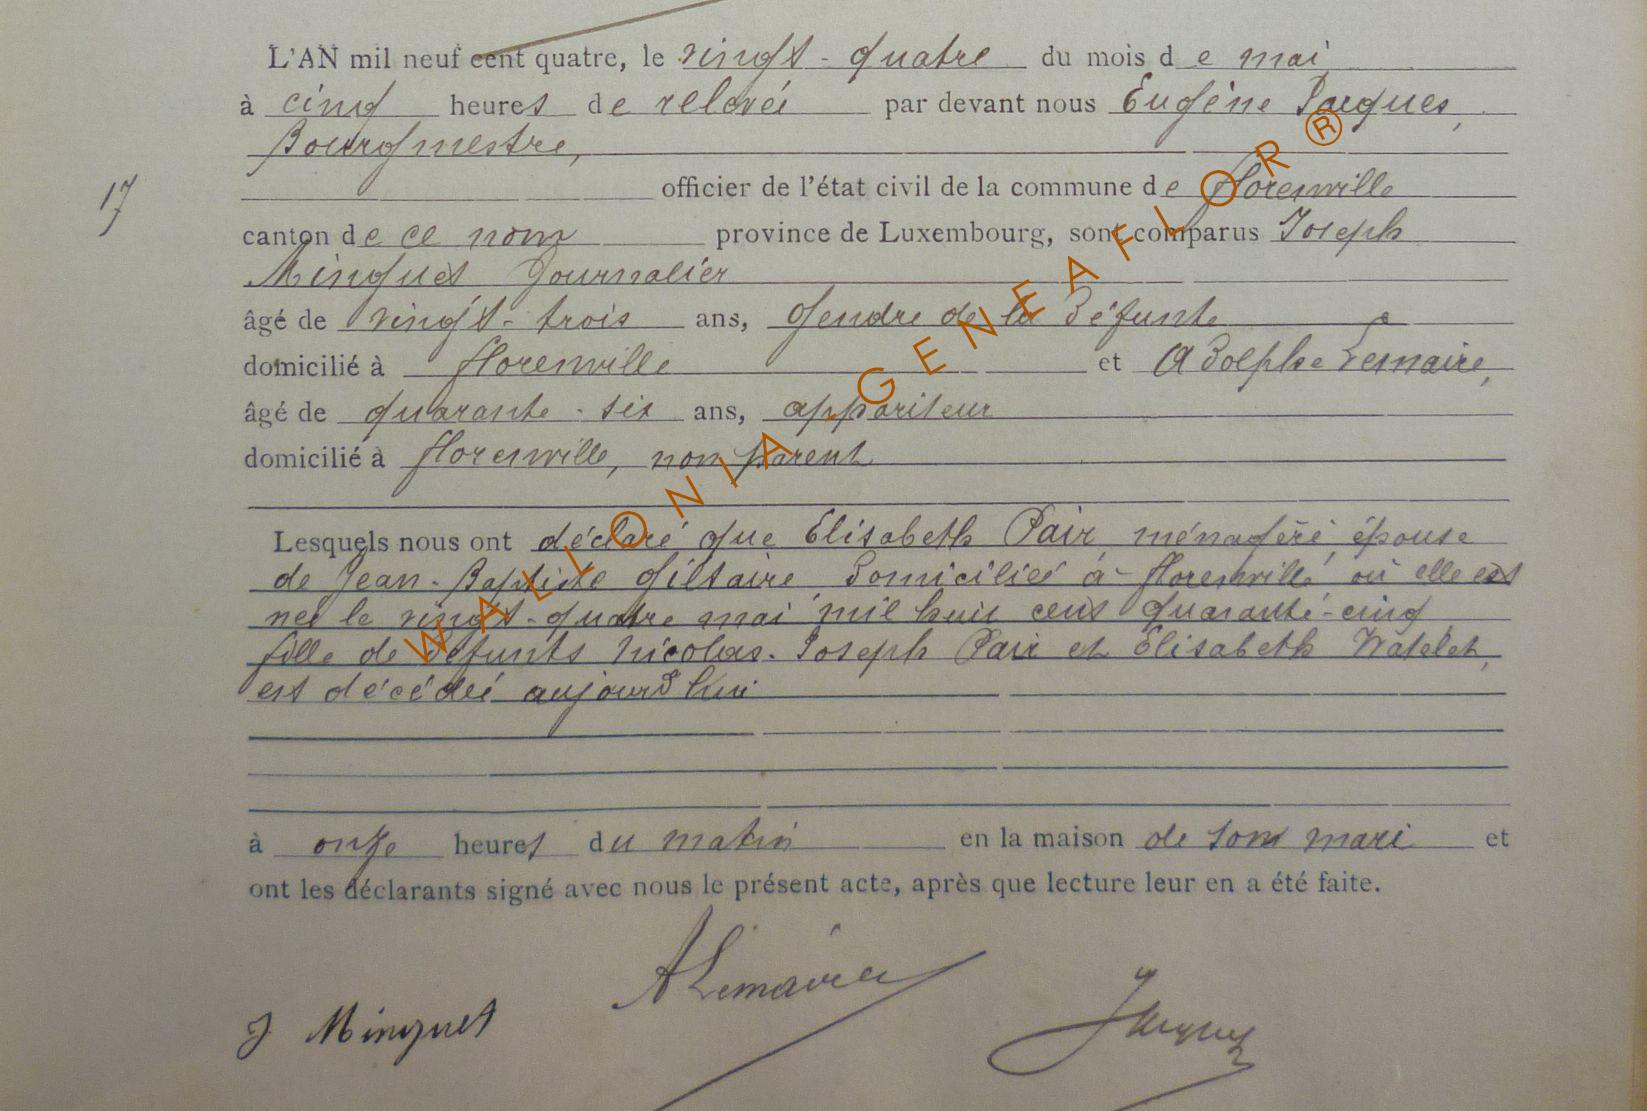 L'AN mil neuf cent quatre, le vingt-quatre du mois de mai
à cinq heures de relevée par devant nous Eugène Jacques,
Bourgmestre,
officier de l'état civil de la commune de florenville
17
canton de ce nom province de Luxembourg, sont comparus Joseph
Minguet Journalier
âgé de vingt-trois ans, gendre de la défunte
domicilié à florenville et Adolphe Lemaire,
âgé de quarante-six ans, appariteur
domicilié à florenville, non parent
Lesquels nous ont déclaré que Elisabeth Pair ménagère, épouse
de Jean-Baptiste Giltaire domiciliée à florenville où elle est
née le vingt-quatre mai mil huit cent quarante-cinq
fille de défunts Nicolas-Joseph Pair et Elisabeth Watelet,
est décédée aujourd'hui
à onze heures du matin en la maison de son mari et
ont les déclarants signé avec nous le présent acte, après que lecture leur en a été faite.
ALemaire
J Minguet
Jacques
WALLONIA - GENEAFLOR®